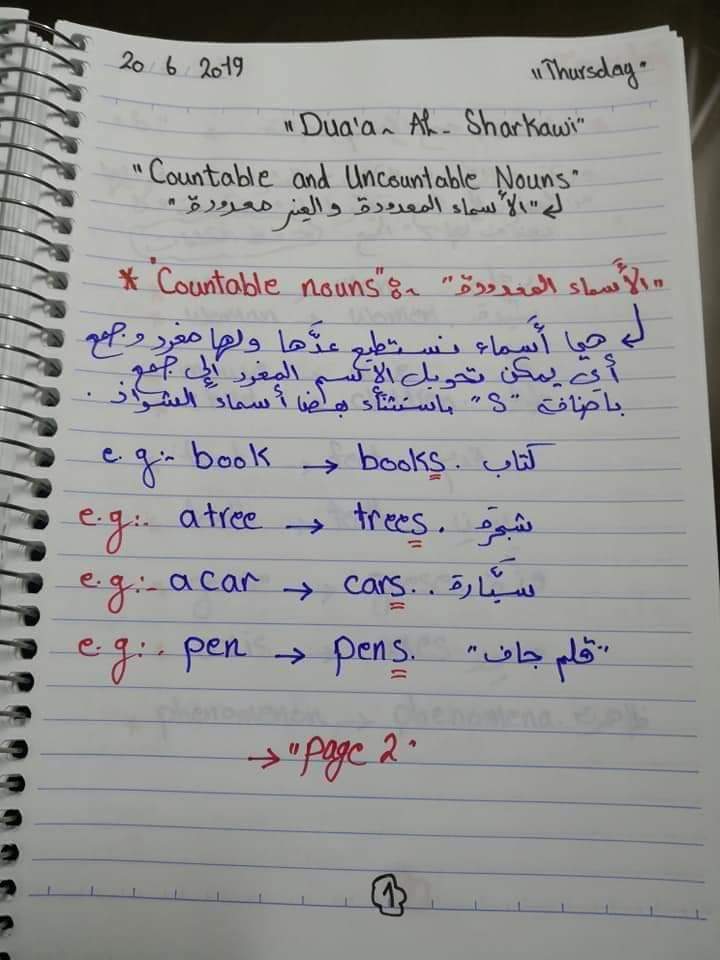 20 6 2019 "Thursday"
"Dua'a ~ Al- Sharkawi"
"Countable and Uncountable Nouns"
"الأسماء المعدودة والغير معدودة"
* "Countable nouns" :~ "الأسماء المعدودة"
هي أسماء نستطيع عدَّها ولها مفرد وجمع
أي يمكن تحويل الاسم المفرد إلى جمع
بإضافة "S" باستثناء بعض أسماء الشواذ.
e.g:- book → books. كتاب
e.g:- a tree → trees. شجرة
e.g:- a car → cars.. سيَّارة
e.g:- pen → pens. "قلم جاف"
→ "page 2"
1